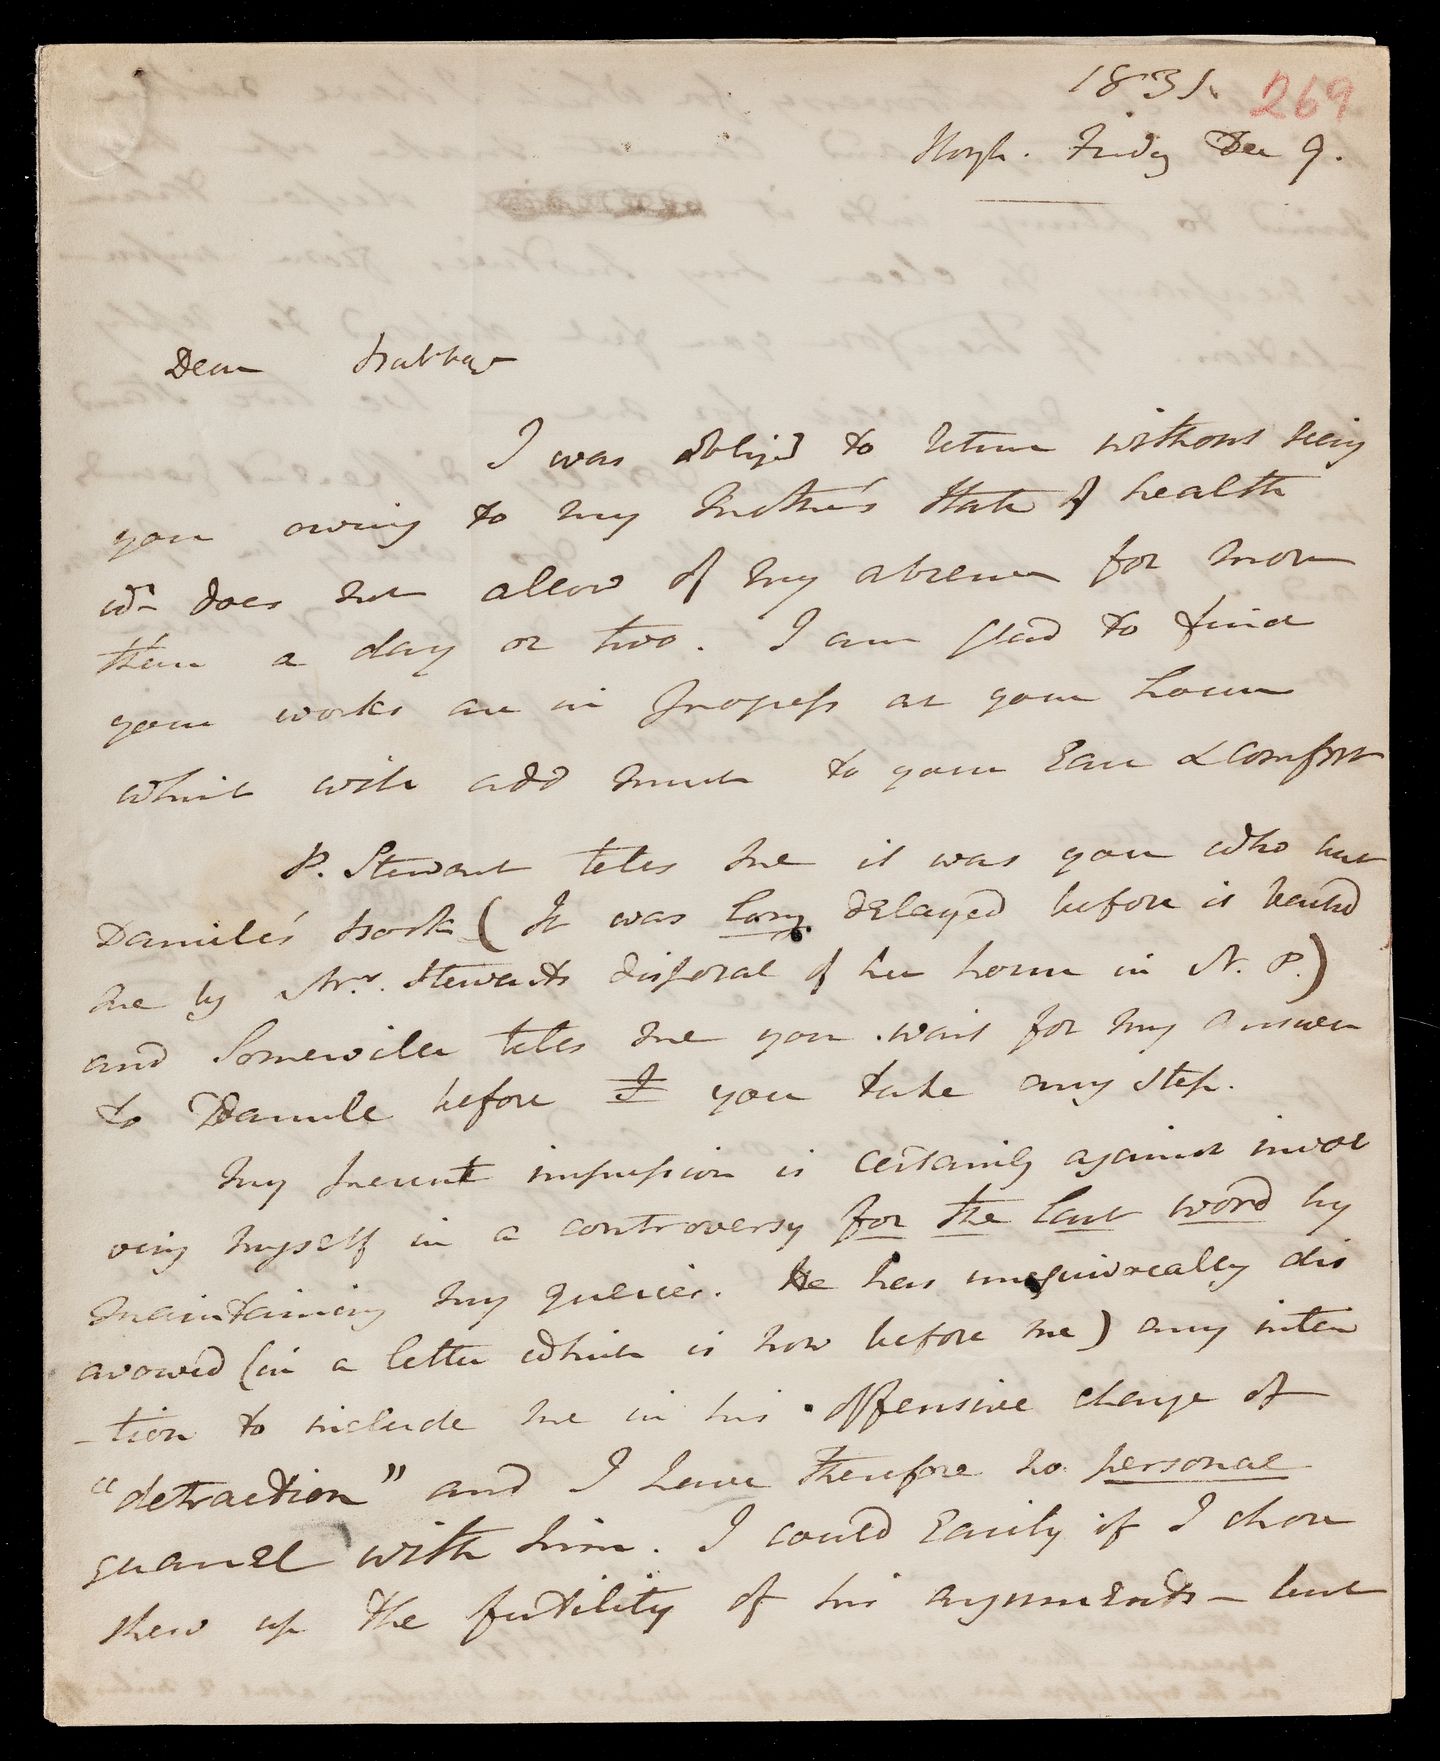 1831. 269
Slough. Friday Dec 9.
Dear Babbage
I was obliged to return without seeing
you owing to my Mother's State of health
wh does not allow of my absence for more
than a day or two. I am glad to find
your works are in progress at your house
which will add much to your Ease & comfort
P. Stewart tells me it was you who sent
Daniell's book (It was long delayed before it reached
me by Mrs. Stewarts disposal of her house in N. P.)
and Somerville tells me you wait for my answer
to Daniell before I you take any step.
My present impression is certainly against invol
ving myself in a controversy for the last word by
maintaining my queries. He has unequivocally dis
avowed (in a letter which is now before me) any inten
-tion to include me in his offensive charge of
"detraction" and I have therefore no personal
quarrel with him. I could Easily if I chose
shew up the futility of his arguments - but